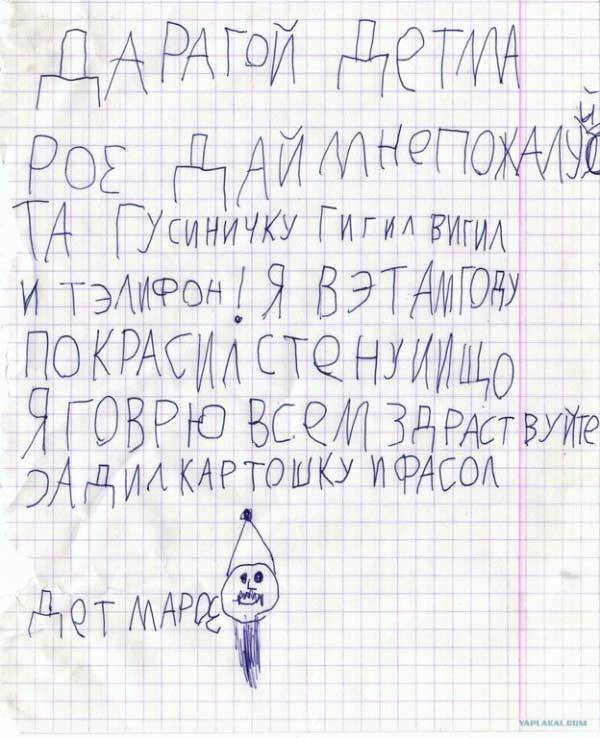 ДАРАГОЙ ДеТМА
РОЕ ДАЙ МНеПОХАЛУЙС
ТА ГУСИНИЧКУ ГИГИЛ ВИГИЛ
И ТЭЛИФОН! Я ВЭТАМГОДУ
ПОКРАСИЛ СТЕНУ И ИЩО
Я ГОВРЮ ВСЕМ ЗДРАСТВУЙТе
ЭАДИЛ КАРТОШКУ И ФАСОЛ
ДеТ МАРОЕ
YAPLAKAL.COM